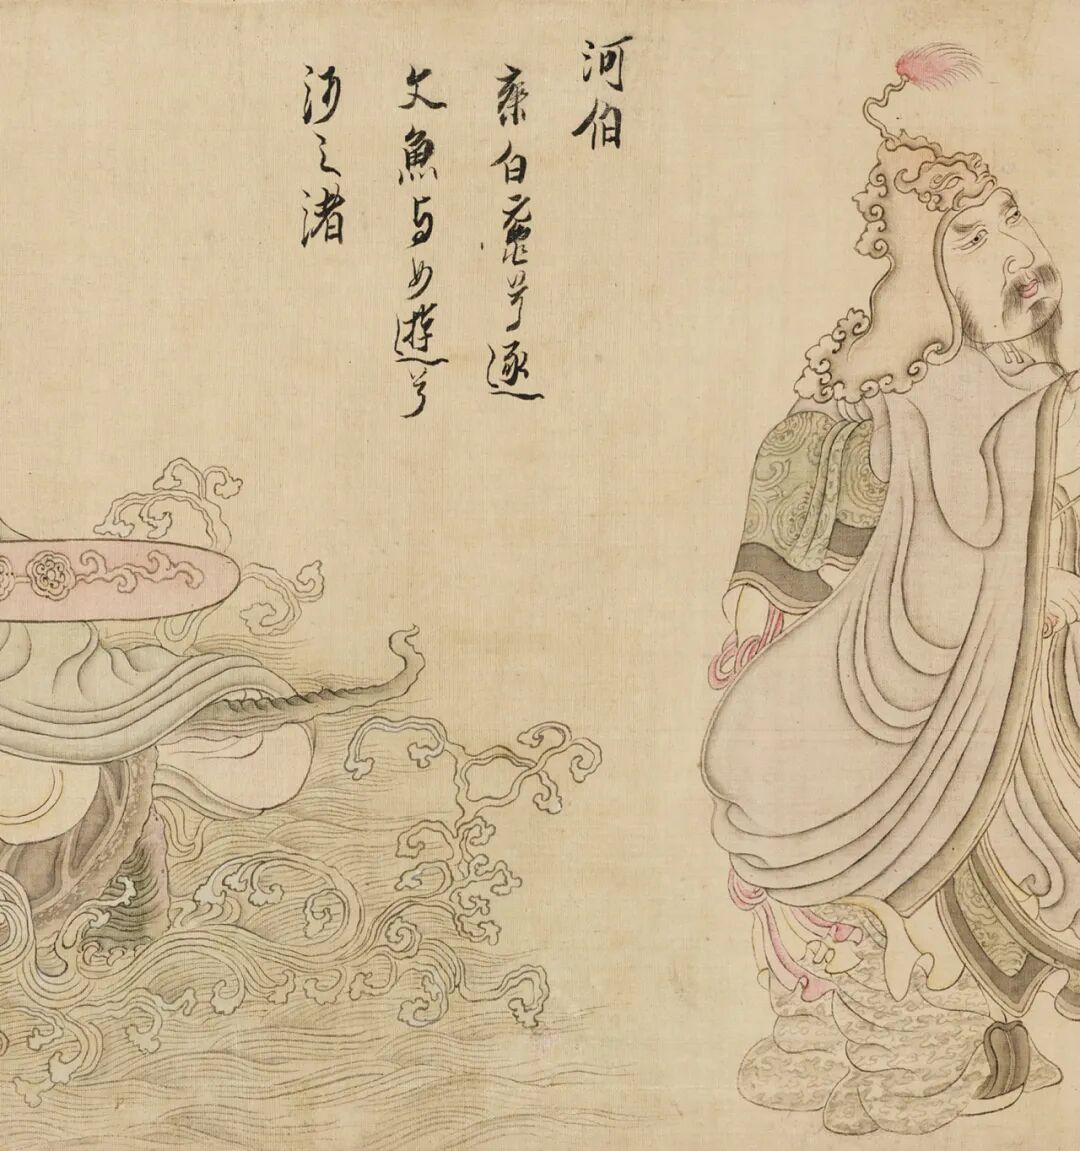 河伯
乘白黿兮逐
文魚与女遊兮
河之渚